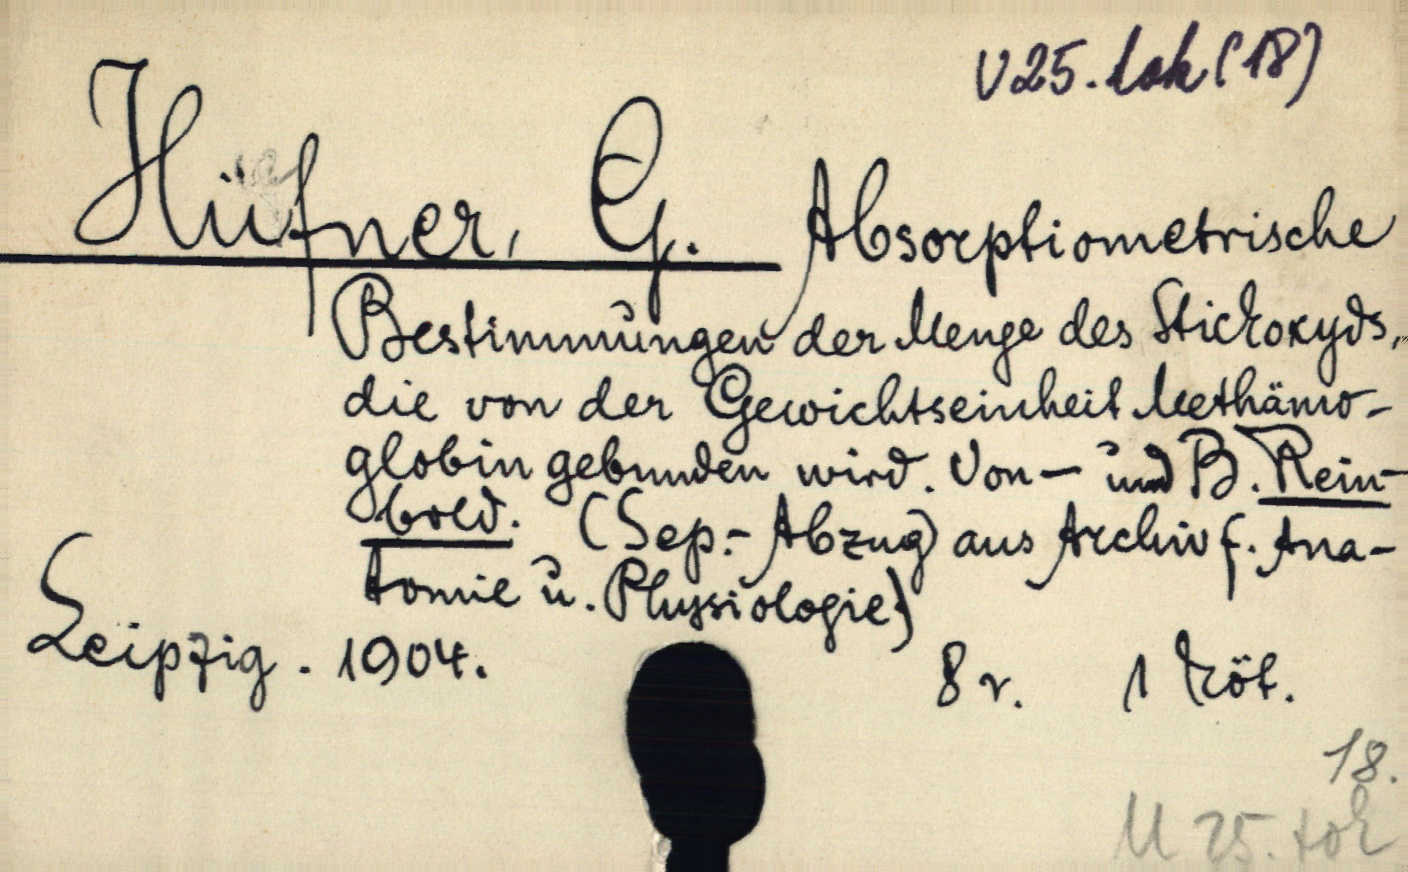 V25. tok (18)
Hüfner, G. Absorptiometrische
Bestimmungen der Menge des Stickoxyds,
die von der Gewichtseinheit Methämo-
globin gebunden wird. Von — und B. Rein-
bold. (Sep.- Abzug) aus Archiv f. Ana-
tomie u. Physiologie)
Leipzig. 1904. 8 r. 1 köt.
18.
25. tok